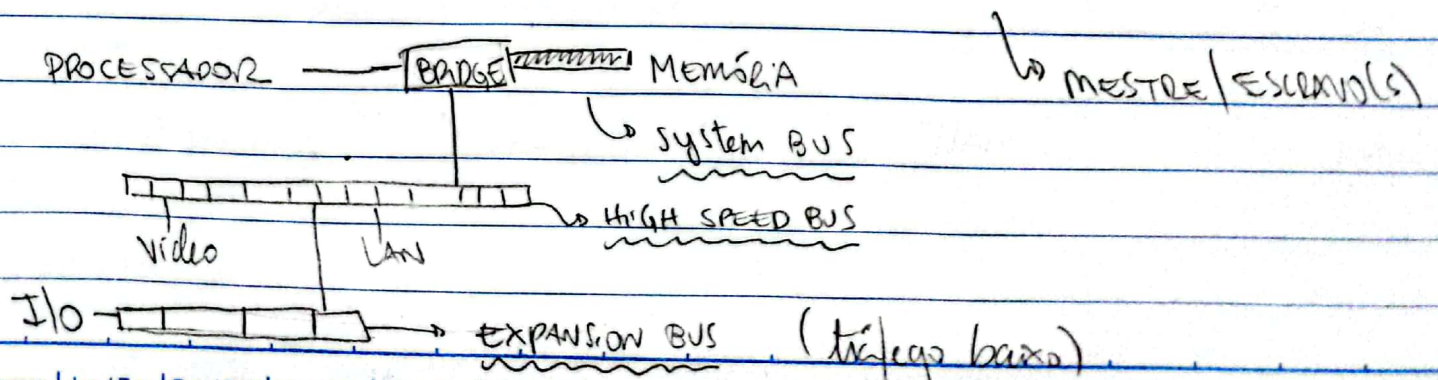 PROCESSADOR BRIDGE MEMÓRIA
↳ MESTRE/ESCRAVO(S)
↳ System BUS
↳ HIGH SPEED BUS
Vídeo LAN
I/O → EXPANSION BUS (tráfego baixo)